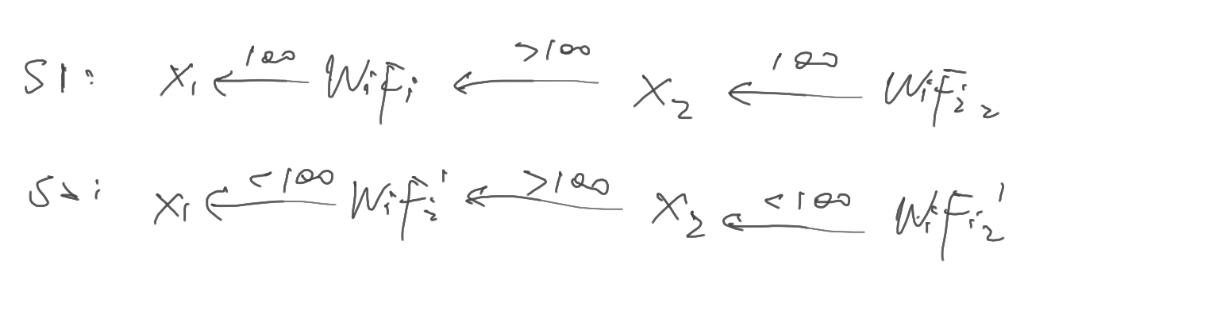 S1: X₁ ← 100 WiFi₁ ← >100 X₂ ← 100 WiFi₂
S2: X₁ ← <100 WiFi₁' ← >100 X₂ ← <100 WiFi₂'